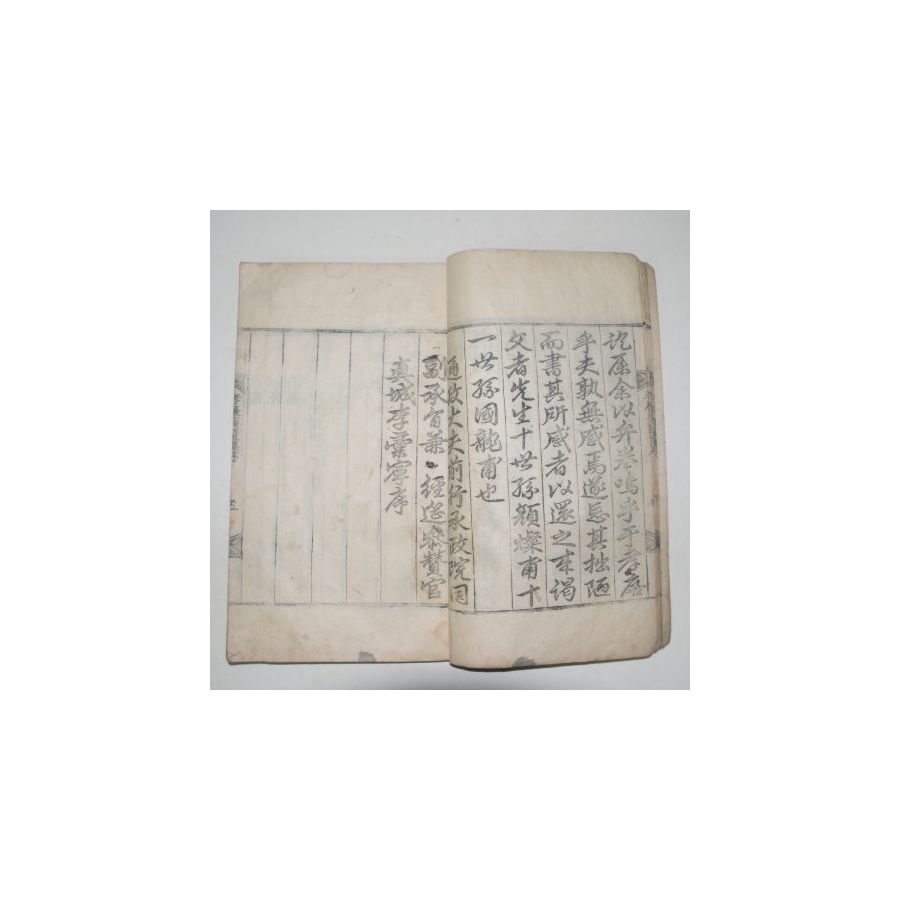 託序余以弁卷嗚乎于孝廬
乎夫孰無感焉遂忘其拙陋
而書其所感者以還之來謁
文者先生十世孫顯燦甫十
一世孫國龍甫也
通政大夫前行承政院同
副承旨兼 經筵參贊官
眞城李彙寧序
五